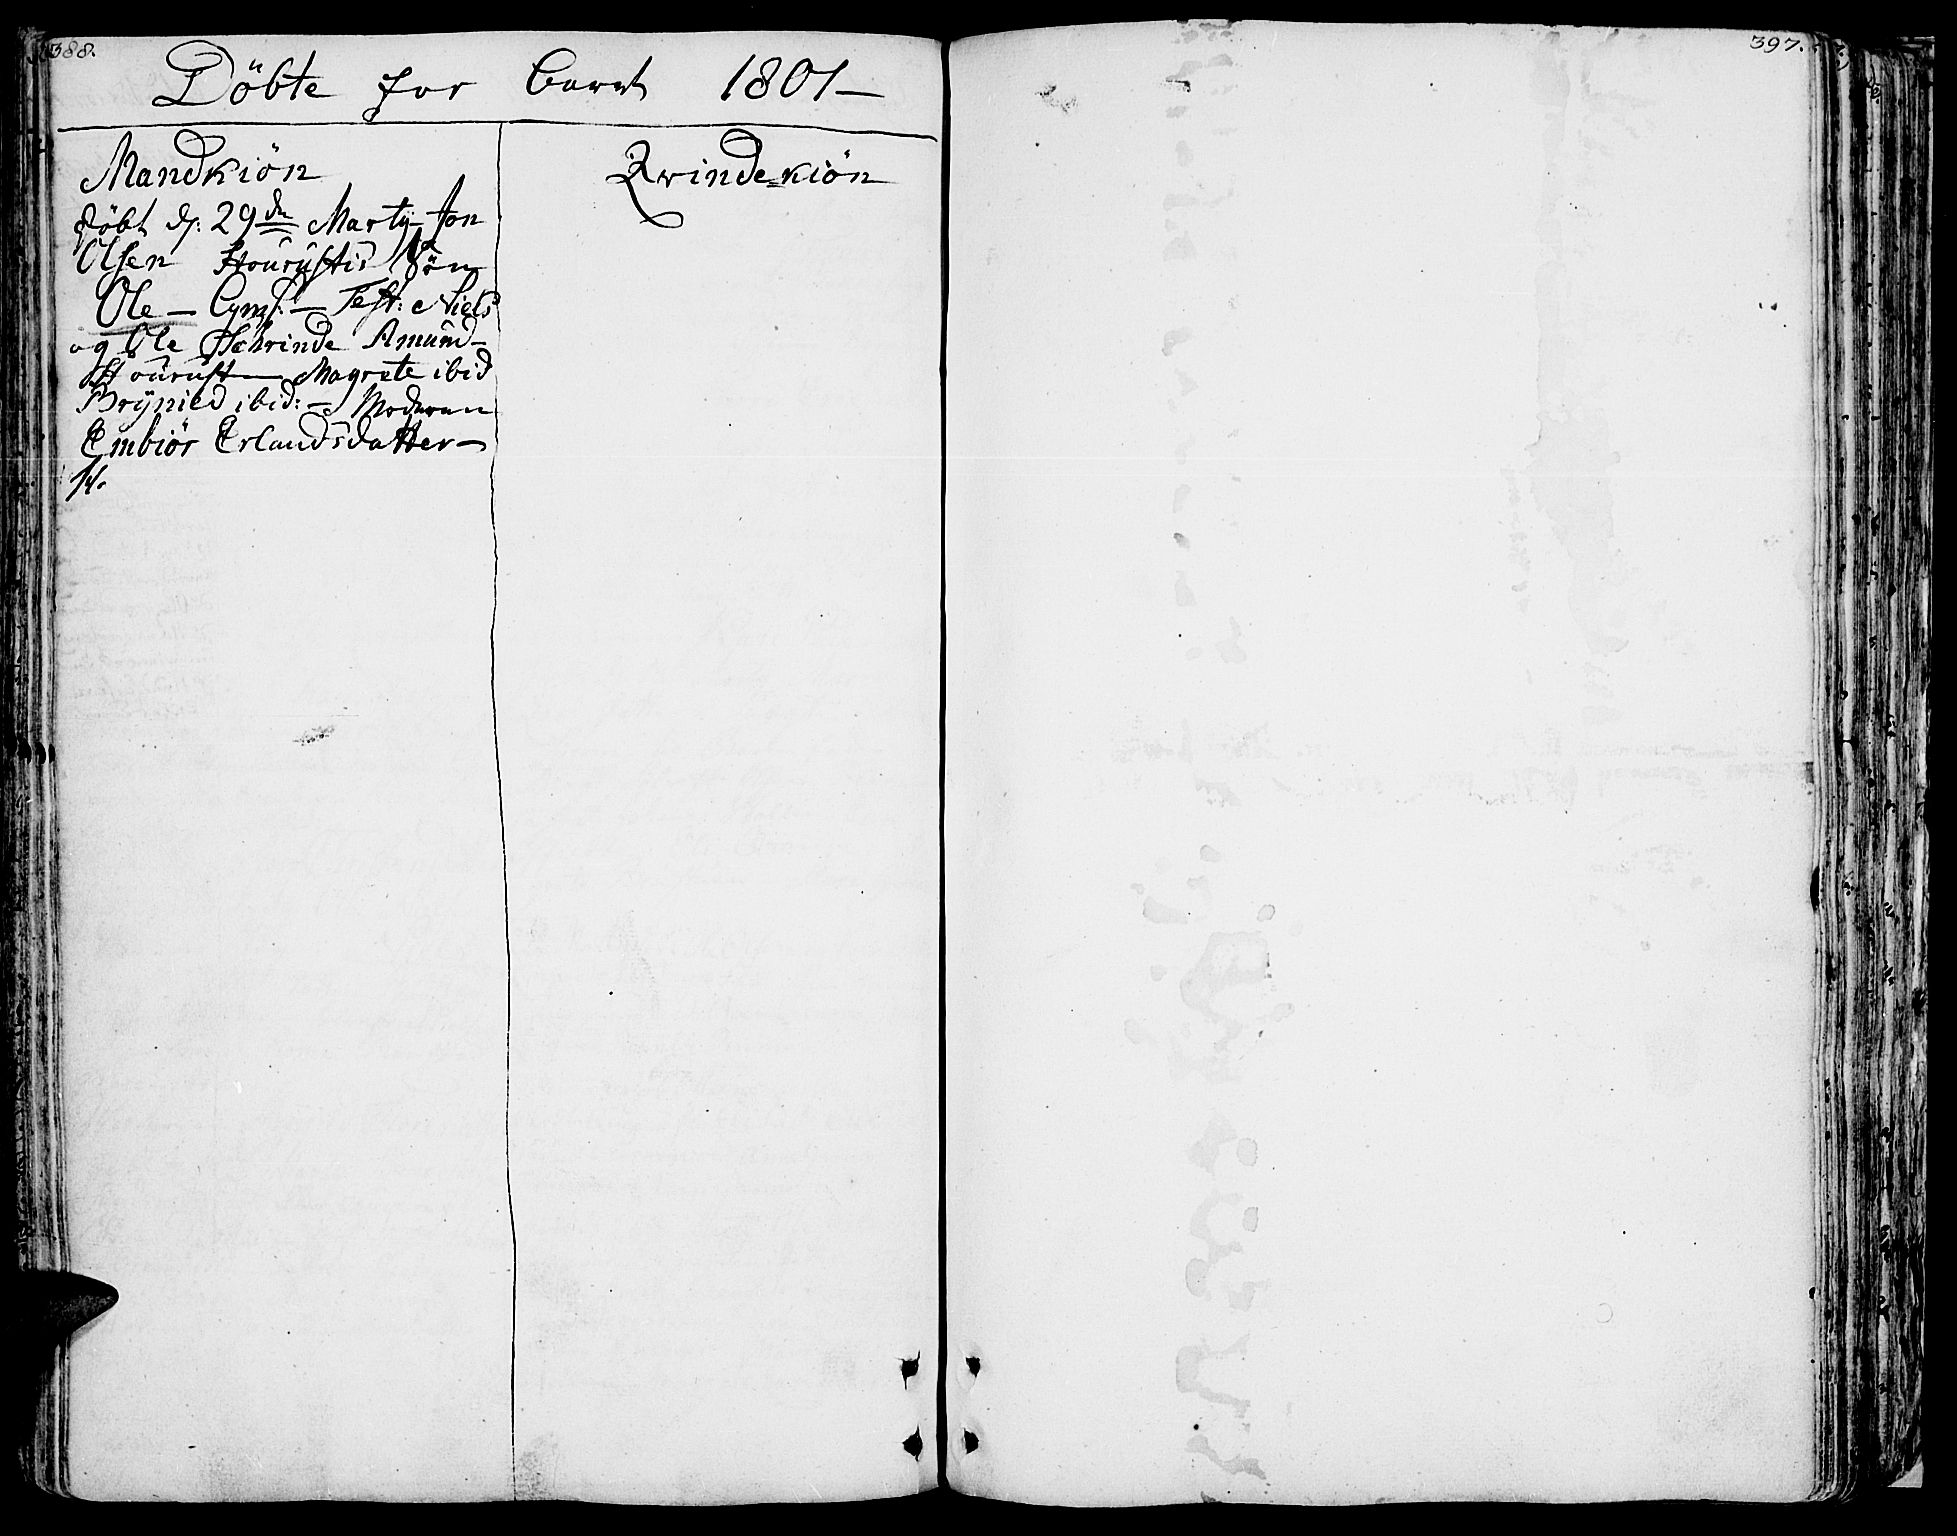 388.
Döbte for Aaret 1801 —
Mandkiön
Döbt d: 29de Martij Jon
Olsen Hourustis Sön
Ole — Test: Niels
og Ole Amund
Hourust — Magrete ibid
Brynild ibid: — Moderen
Embiör Erlandsdatter —
14.
Qvindekiön
397.